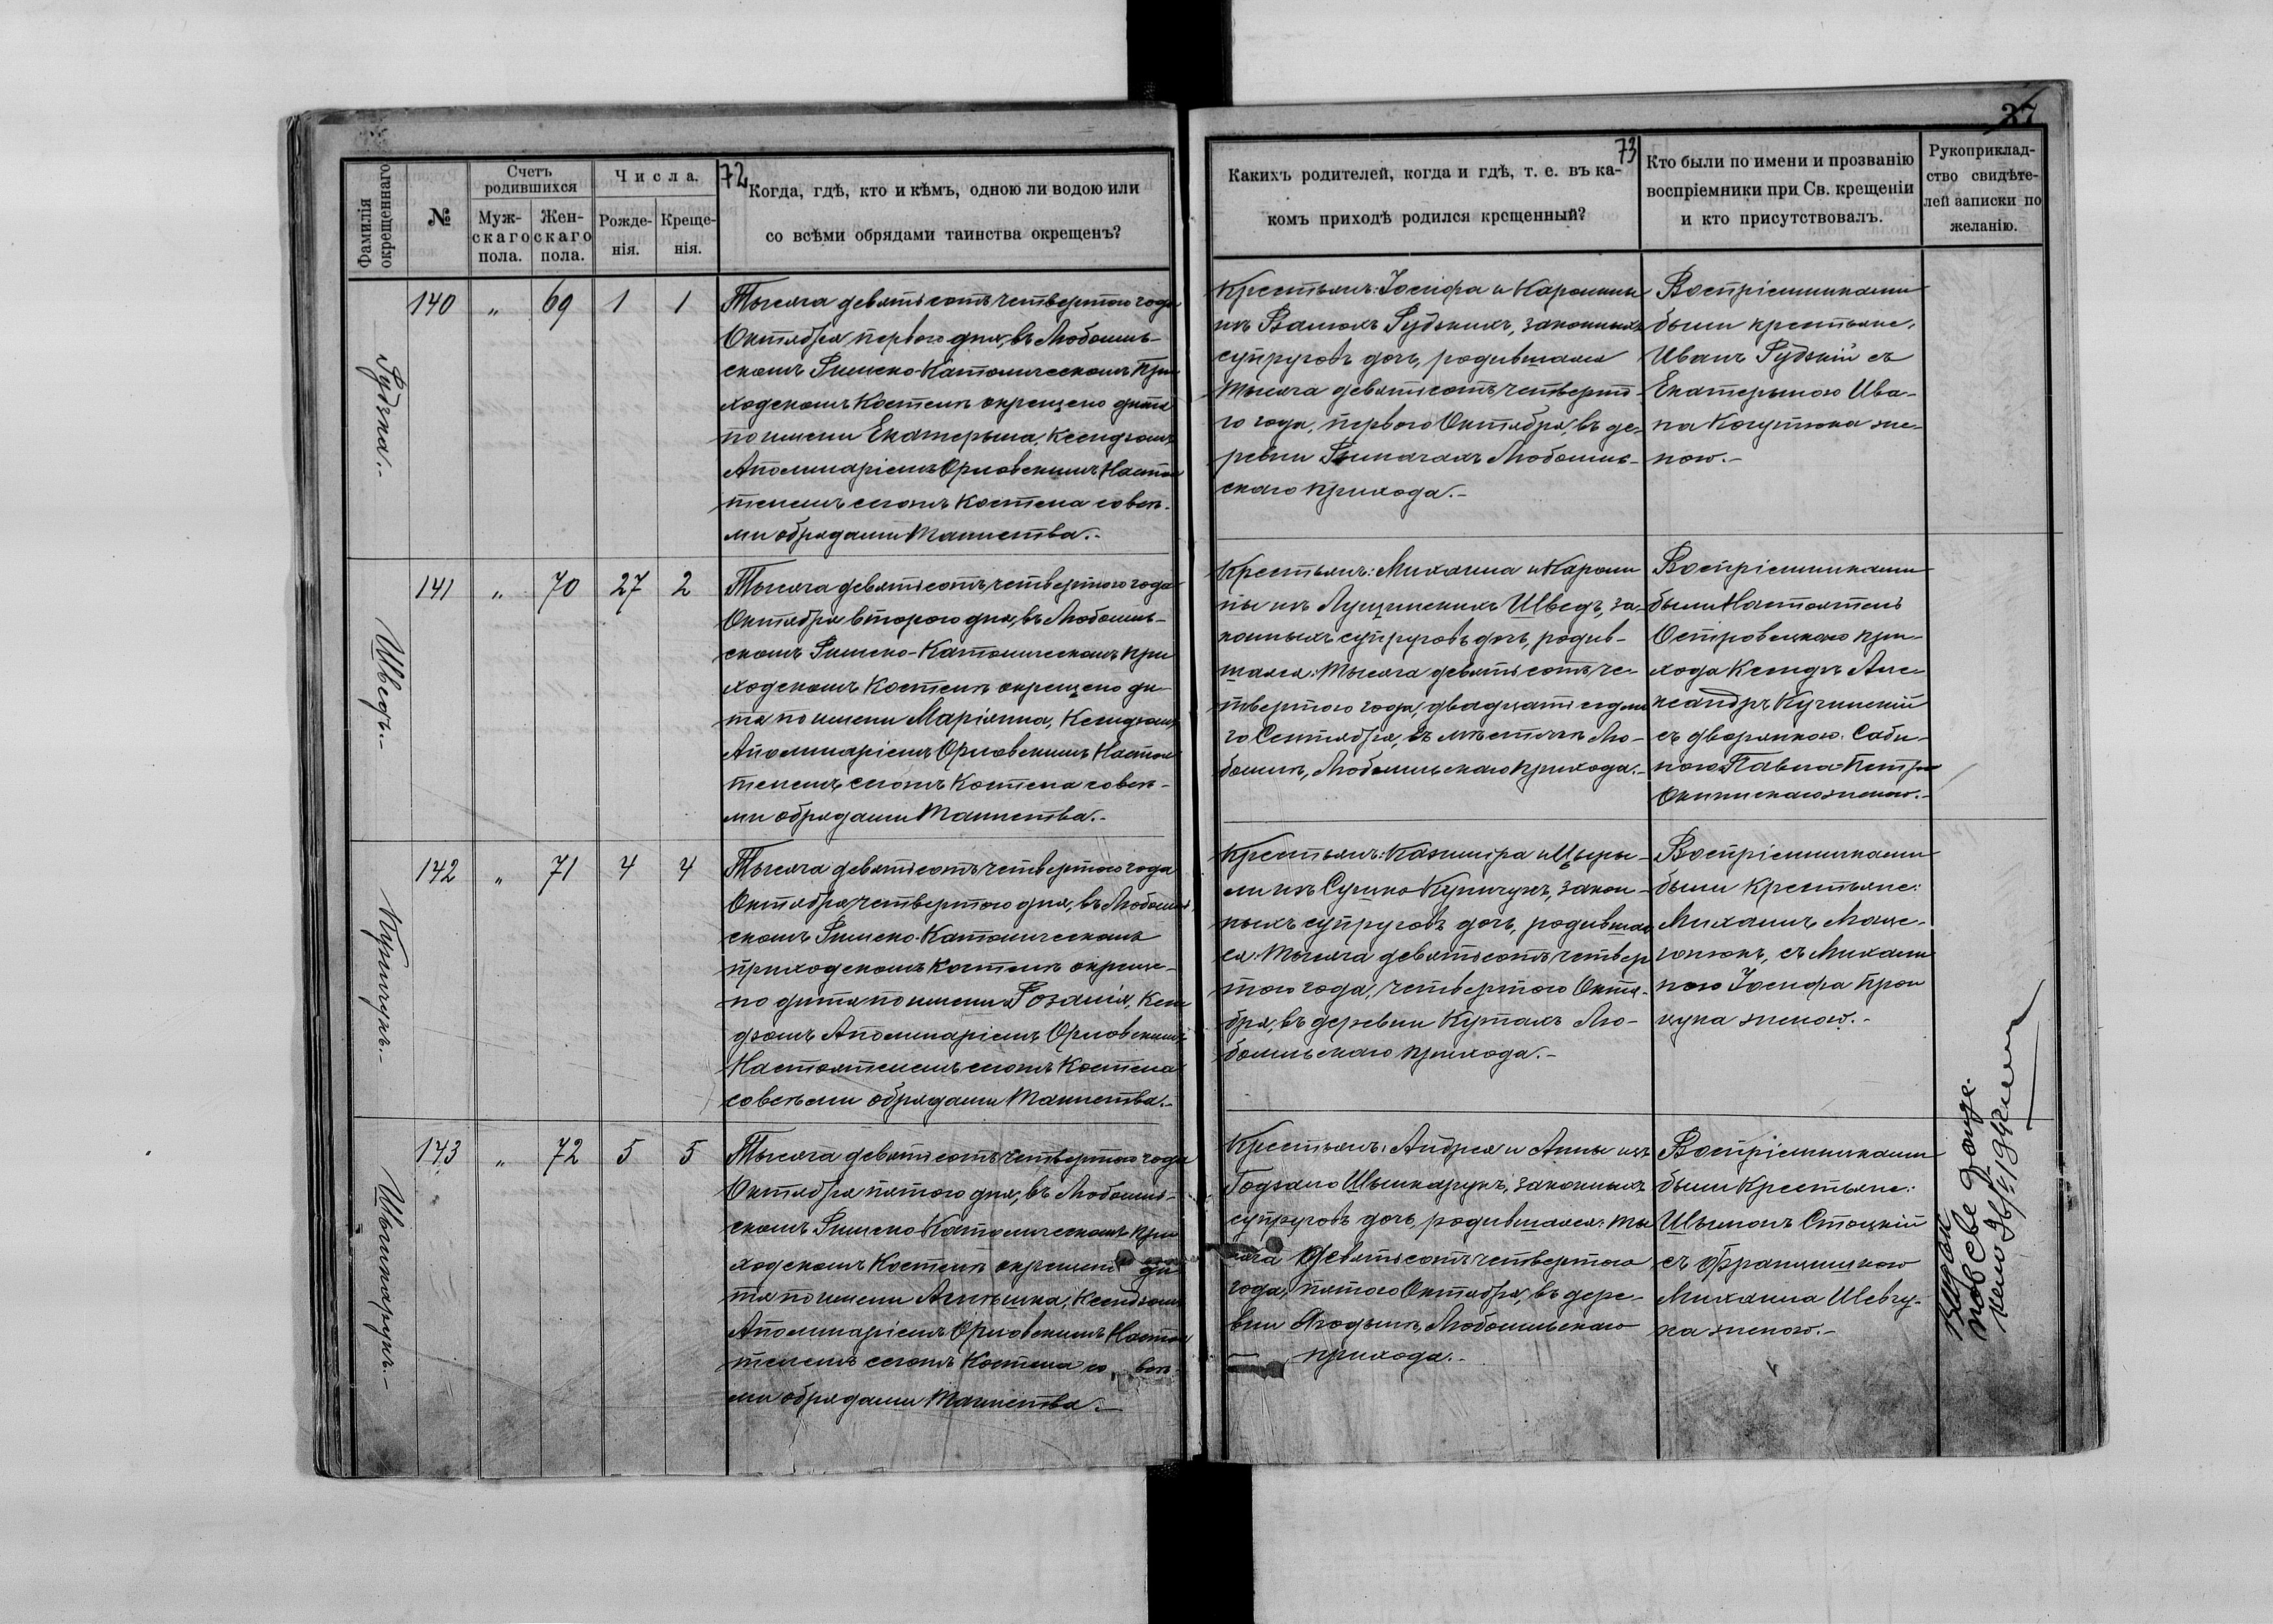 37
72
73
Фамилія окрещеннаго
№
Счетъ родившихся
Муж-
скаго
пола.
Жен-
скаго
пола.
Числа.
Рожде-
нія.
Креще-
нія.
Когда, гдѣ, кто и кѣмъ, одною ли водою или
со всѣми обрядами таинства окрещенъ?
Какихъ родителей, когда и гдѣ, т. е. въ ка-
комъ приходѣ родился крещенный?
Кто были по имени и прозванію
воспріемники при Св. крещеніи
и кто присутствовалъ.
Рукоприклад-
ство свидѣте-
лей записки по
желанію.
Рудзка.-
140 " 69 1 1
Тысяча девятьсотъ четвертого года
Октября первого дня, въ Любомль-
скомъ Римско-Католическомъ При
ходскомъ Костелѣ окрещено дитя
по имени Екатерина, Ксендзомъ
Аполинаріемъ Орловскимъ Настоя
телемъ сегожъ Костела совсѣ-
ми обрядами Таинства.-
Крестьянъ: Іосифа и Каролины
изъ Рудзкихъ, законныхъ
супруговъ дочь, родившаяся
тысяча девятьсотъ четверто-
го года, первого Октября, въ де-
ревни Любомль-
скаго прихода.-
Воспріемниками
были крестьяне,
Иванъ Рудзкій съ
Екатериною Ива-
на Когутюка же-
ною.-
Шведъ.-
141 " 70 27 2
Тысяча девятьсотъ четвертого года
Октября второго дня, въ Любомль-
скомъ Римско-Католическомъ При
ходскомъ Костелѣ окрещено ди-
тя по имени Маріянна, Ксендзомъ
Аполинаріемъ Орловскимъ Настоя
телемъ сегожъ Костела совсѣ-
ми обрядами Таинства.-
Крестьянъ: Михаила и Кароли
ны изъ Лущинскихъ Шведъ, за-
конныхъ супруговъ дочь, родив-
шаяся: тысяча девятьсотъ че-
твертого года, двадцать седьмо
го Сентября, въ мѣстечкѣ Лю-
бомлѣ, Любомльскаго прихода.-
Воспріемниками
были Настоятель
Островецкаго при-
хода Ксендзъ Алек-
ксандръ Кучинскій
съ дворянкою: Саби-
ною Павла-Петра
женою.-
Куничукъ.-
142 " 71 4 4
Тысяча девятьсотъ четвертого года
Октября четвертого дня, въ Любомль
скомъ Римско-Католическомъ
приходскомъ Костелѣ окреще-
но дитя по имени Розалія, Ксен
дзомъ Аполинаріемъ Орловскимъ
Настоятелемъ сегожъ Костела
совсѣми обрядами Таинства.-
Крестьянъ: Казиміра и Цыры-
ли изъ Сушко Куничукъ, закон-
ныхъ супруговъ дочь, родившая
ся: тысяча девятьсотъ четвер
того года, четвертого Октя-
бря, въ деревни Кутахъ Лю-
бомльскаго прихода.-
Воспріемниками
были Крестьяне:
Михаилъ Маце-
гонюкъ, съ Михали
ною Іосифа Крон
чука женою.-
Шыйкарукъ.-
143 " 72 5 5
Тысяча девятьсотъ четвертого года
Октября пятого дня, въ Любомль-
скомъ Римско Католическомъ При
ходскомъ Костелѣ окрещено ди
тя по имени Агнѣшка, Ксендзомъ
Аполинаріемъ Орловскимъ Настоя
телемъ сегожъ Костела со всѣ-
ми обрядами Таинства.-
Крестьянъ: Андрея и Анны изъ
Годзало законныхъ
супруговъ дочь, родившаяся: ты
сяча девятьсотъ четвертого
года, пятого Октября, въ дере-
вни Любомльскаго
прихода.-
Воспріемниками
были Крестьяне:
Шымонъ Стоцкій
съ Францишкою
Михаила Шевчу-
ка женою.-